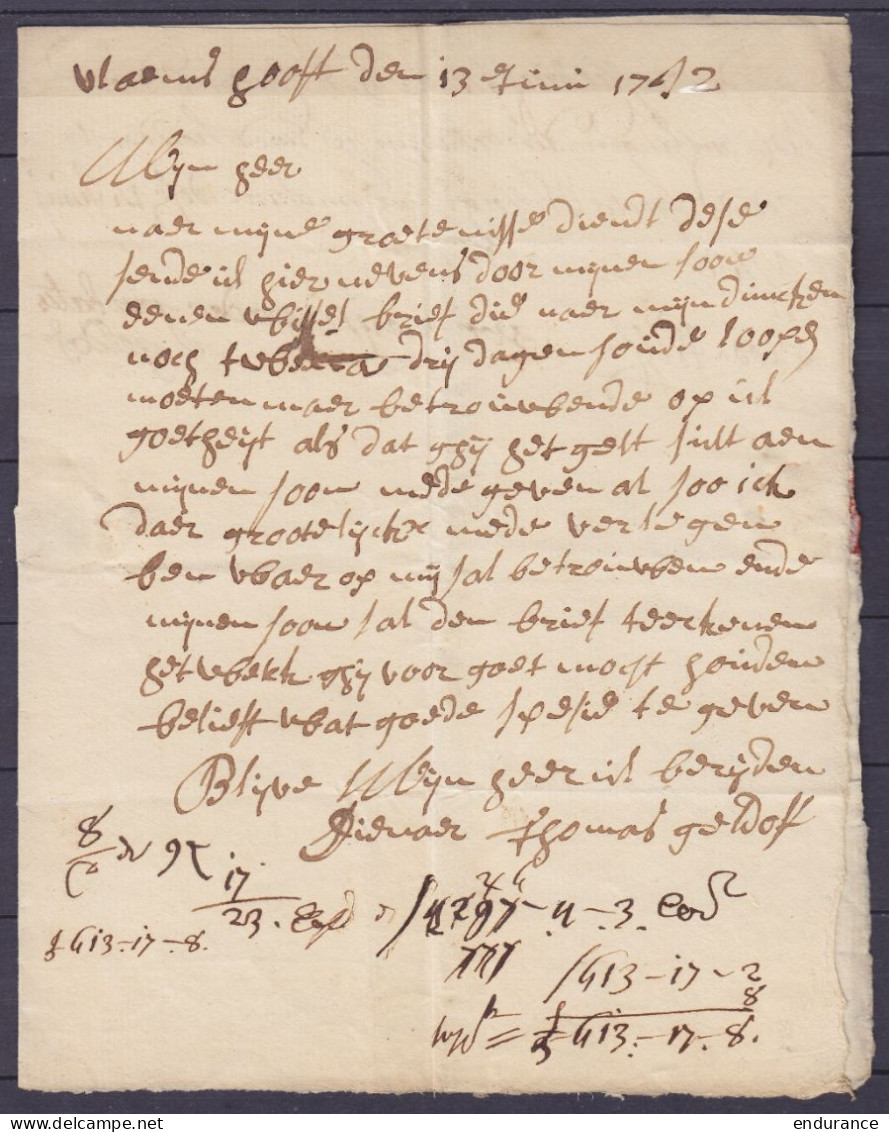 vlaems hooft den 13 Juni 17
Mijn heer
naer mijne groetenisse dient dese
sende ick hier nevens door mijnen soon
eenen wissel brief die naer mijn dincken
noch drij dagen soude loopen
moeten maer betrouwende op ul
goetheijt als dat ghij het gelt sult aen
mijnen soon mede geven al soo ick
daer grootelijckx mede verlegen
ben waer op mij sal betrouwen ende
mijnen soon sal den brief teeckenen
het welck ghij voor goet mocht houden
belieft wat goede spesie te geven
Blijve Mijn heer ul bereijden
Dienaer Thomas geldoff
8
17
23.
413-17-8.
-4-3.
413-17-2
8
413.-17-8.
endurance